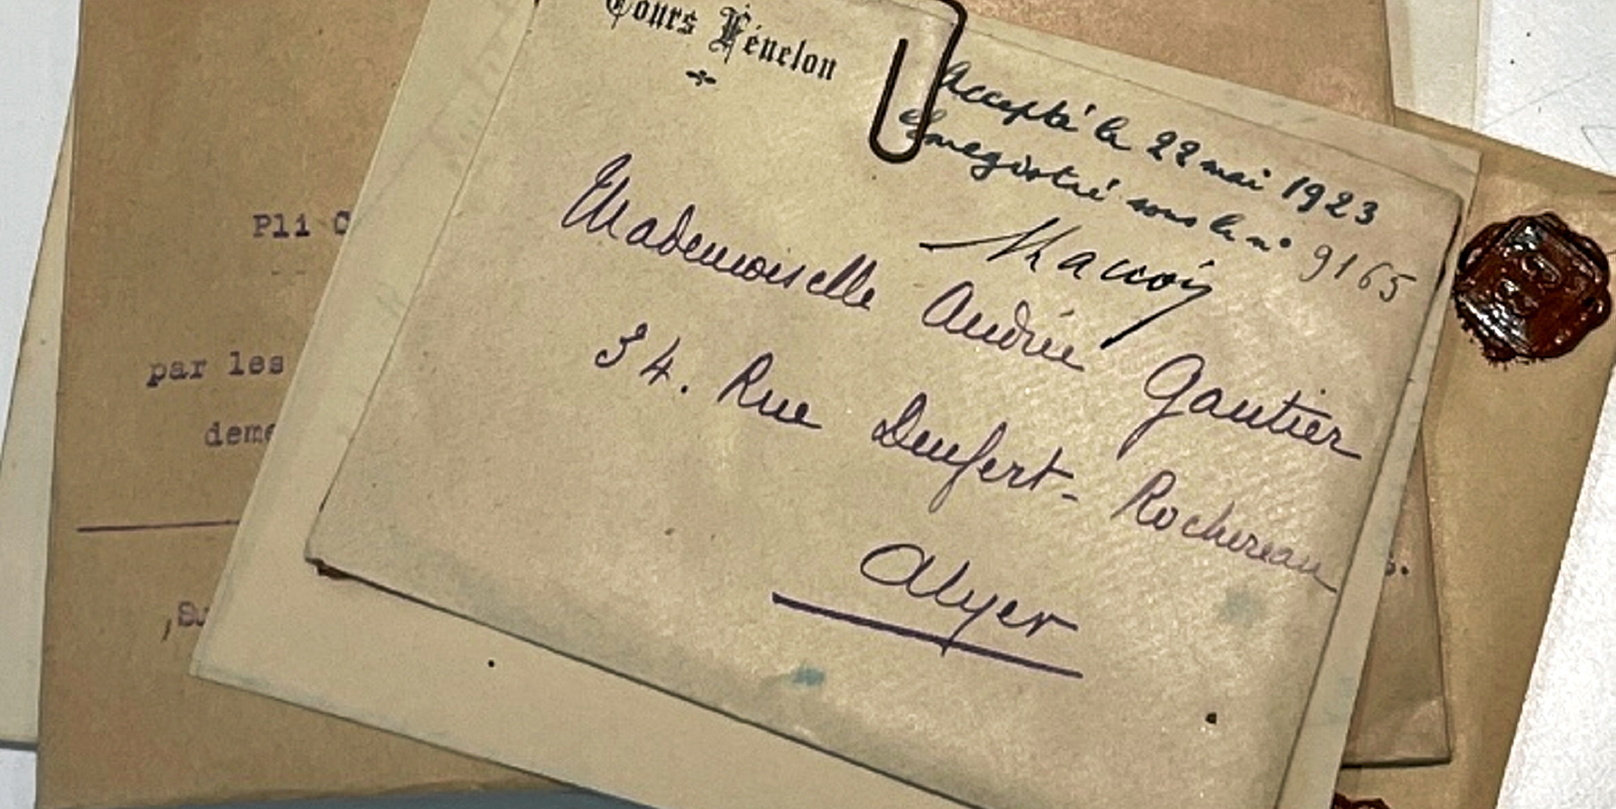 Cours Fénelon
Accepté le 22 mai 1923
Enregistré sous le n° 9165
Mademoiselle Andrée Gautier
34. Rue Denfert-Rochereau
Alger
Pli C
par les
deme